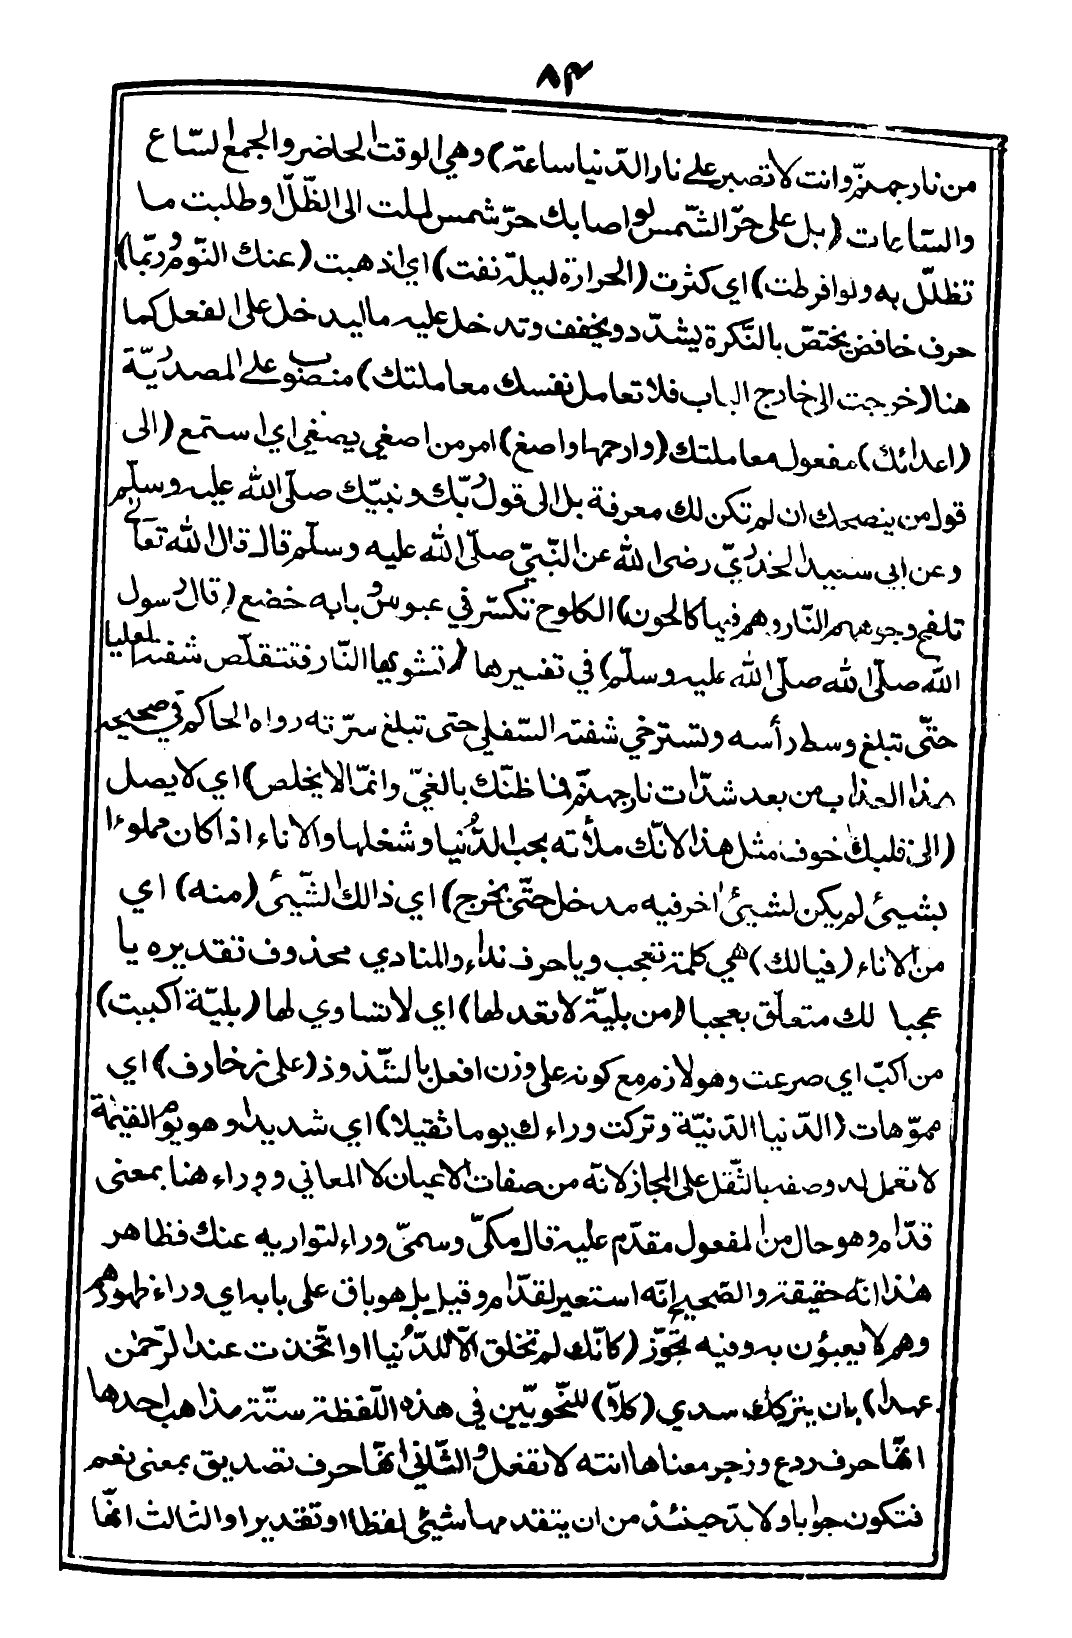 ٨٤
من نار جهنّم وانت لا تصبر على نار الدّنيا ساعة) وهي الوقت الحاضر والجمع السّاع
والسّاعات (بل على حرّ الشّمس لو اصابك حرّ شمس لملت الى الظّلّ وطلبت ما
تظلّل به ولو افرطت) اي كثرت (الحرارة ليلة نفت) اي اذهبت (عنك النّوم وربّما)
حرف خافض يختصّ بالنّكرة يشدّد ويخفف وتدخل عليه ما ليدخل على الفعل كما
هنا (خرجت الى خارج الباب فلا تعامل نفسك معاملتك) منصوب على المصدريّة
(اعدائك) مفعول معاملتك (وارحمها واصغ) امر من اصغي يصغي اي استمع (الى
قول من ينصحك ان لم تكن لك معرفة بل الى قول ربّك ونبيّك صلّى الله عليه وسلّم
وعن ابي سعيد الخدريّ رضى الله عن النّبيّ صلّى الله عليه وسلّم قال قال الله تعالى
تلفح وجوههم النّار وهم فيها كالحون) الكلوح تكسّر في عبوس وبابه خضع (قال رسول
الله صلّى الله صلّى الله عليه وسلّم) في تفسيرها (تشويها النّار فتتقلّص شفته العليا
حتّى تبلغ وسط رأسه وتسترخي شفته السّفلي حتى تبلغ سرّته رواه الحاكم في صحيحه
هذا العذاب من بعد شدّات نار جهنّم فما ظنّك بالغيّ وانمّا لا يخلص) اي لا يصل
(الى قلبك خوف مثل هذا لانّك ملأته بحب الدّنيا وشغلها والاناء اذا كان مملوءا
بشيئ لم يكن لشيئ اخر فيه مدخل حتّى يخرج) اي ذالك الشّيئ (منه) اي
من الاناء (فيالك) هي كلمة تعجب ويا حرف نداء والمنادي محذوف تقديره يا
عجبا لك متعلّق بعجبا (من بليّة لا تعدلها) اي لا تساوي لها (بليّة اكببت)
من اكبّ اي صرعت وهو لازم مع كونه على وزن افعل بالشّذوذ (على زخارف) اي
مموّهات (الدّنيا الدّنيّة وتركت وراءك يوما ثقيلا) اي شديدا وهو يوم القيمة
لا تعمل له وصفه بالثّقل على المجاز لانّه من صفات الاعيان لا المعاني ووراء هنا بمعنى
قدّام وهو حال من المفعول مقدّم عليه قال مكّى وسمّى وراء لتواريه عنك فظاهر
هذا انّه حقيقة والصّحيح انّه استعير لقدّام وقيل بل هو باق على بابه اي وراء ظهورهم
وهم لا يعبؤن به وفيه تجوّز (كانّك لم تخلق الاّ للدّنيا او اتّخذت عند الرّحمن
عهدا) بان يتركك سدي (كلاّ) للنّحويّين في هذه اللّفظة ستّة مذاهب احدها
انّها حرف ردع وزجر معناها انته لا تفعل والثّاني انّها حرف تصديق بمعنى نعم
فتكون جوابا ولا بدّ حينئذ من ان يتقدمها شيئ لفظا او تقديرا والثالث انّها